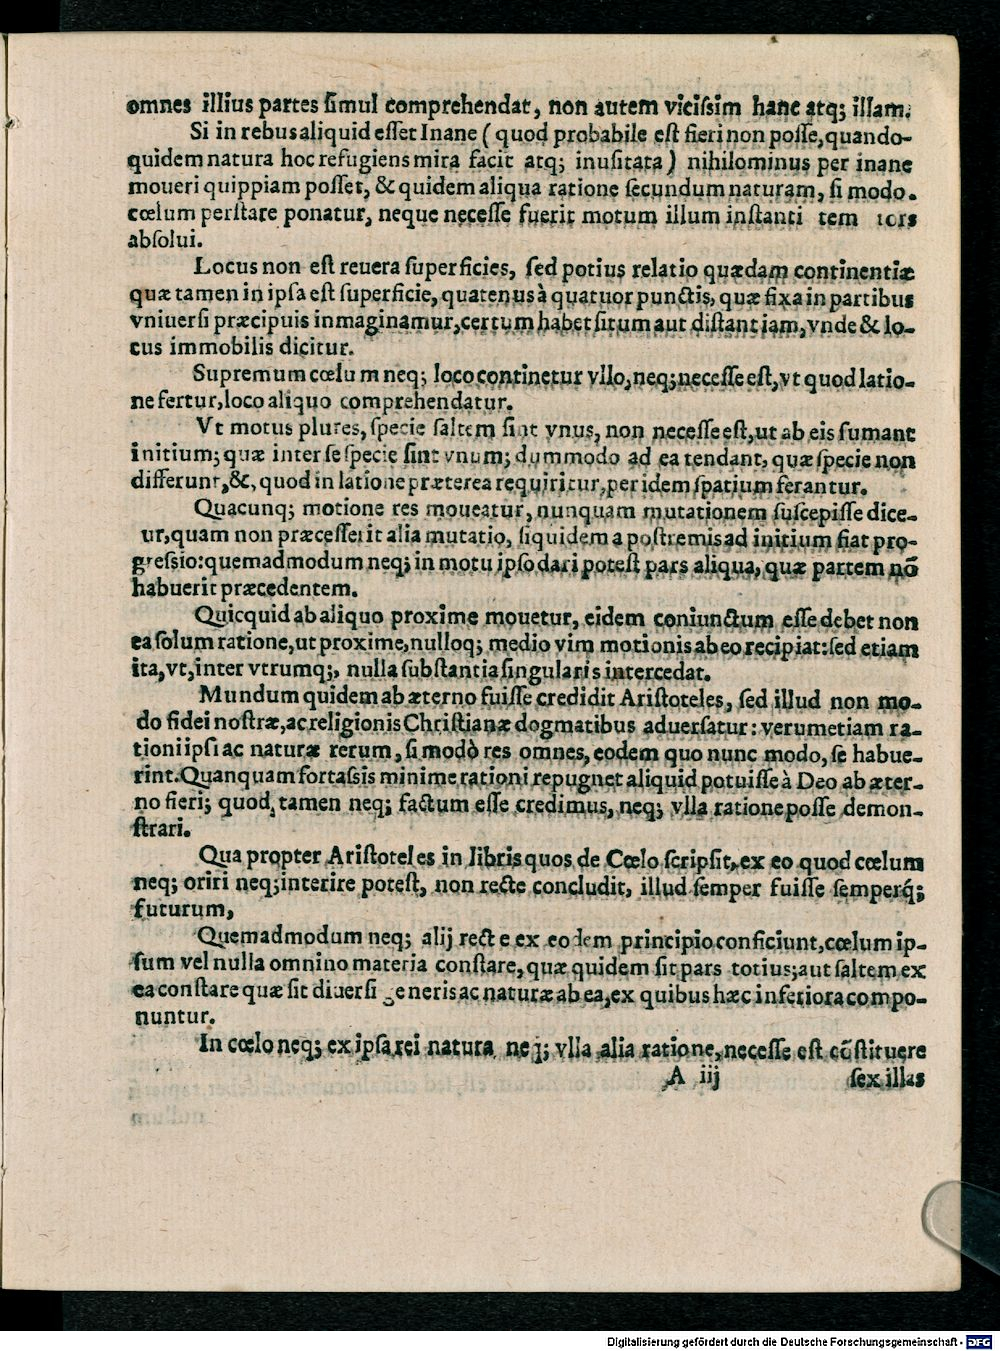 omnes illius partes ſimul comprehendat, non autem viciſsim hanc atq; illam.
Si in rebus aliquid eſſet Inane ( quod probabile eſt fieri non poſſe, quando-
quidem natura hoc refugiens mira facit atq; inuſitata ) nihilominus per inane
moueri quippiam poſſet, & quidem aliqua ratione ſecundum naturam, ſi modo.
cœlum perſtare ponatur, neque neceſſe fuerit motum illum inſtanti tem
abſolui.
Locus non eſt reuera ſuperficies, ſed potius relatio quædam continentiæ
quæ tamen in ipſa eſt ſuperficie, quatenus à quatuor punctis, quæ fixa in partibus
vniuerſi præcipuis inmaginamur, certum habet ſitum aut diſtantiam, vnde & lo-
cus immobilis dicitur.
Supremum cœlum neq; loco continetur vllo, neq; neceſſe eſt, vt quod latio-
ne fertur, loco aliquo comprehendatur.
Vt motus plures, ſpecie ſaltem ſint vnus, non neceſſe eſt, ut ab eis ſumant
initium; quæ inter ſe ſpecie ſint vnum; dummodo ad ea tendant, quæ ſpecie non
differunt, &, quod in latione præterea requiritur, per idem ſpatium ferantur.
Quacunq; motione res moueatur, nunquam mutationem ſuſcepiſſe dice-
ur, quam non præceſſerit alia mutatio, ſiquidem a poſtremis ad initium fiat pro-
greſsio: quemadmodum neq; in motu ipſo dari poteſt pars aliqua, quæ partem nō
habuerit præcedentem.
Quicquid ab aliquo proxime mouetur, eidem coniunctum eſſe debet non
ea ſolum ratione, ut proxime, nulloq; medio vim motionis ab eo recipiat: ſed etiam
ita, vt, inter vtrumq;, nulla ſubſtantia ſingularis intercedat.
Mundum quidem ab æterno fuiſſe credidit Ariſtoteles, ſed illud non mo-
do fidei noſtræ, ac religionis Chriſtianæ dogmatibus aduerſatur: verumetiam ra-
tioni ipſi ac naturæ rerum, ſi modò res omnes, eodem quo nunc modo, ſe habue-
rint. Quanquam fortaſsis minime rationi repugnet aliquid potuiſſe à Deo ab æter-
no fieri; quod, tamen neq; factum eſſe credimus, neq; vlla ratione poſſe demon-
ſtrari.
Qua propter Ariſtoteles in libris quos de Cœlo ſcripſit, ex eo quod cœlum
neq; oriri neq; interire poteſt, non recte concludit, illud ſemper fuiſſe ſemperq́;
futurum,
Quemadmodum neq; alij recte ex eodem principio conficiunt, cœlum ip-
ſum vel nulla omnino materia conſtare, quæ quidem ſit pars totius; aut ſaltem ex
ea conſtare quæ ſit diuerſi generis ac naturæ ab ea, ex quibus hæc inferiora compo-
nuntur.
In cœlo neq; ex ipſa rei natura neq; vlla alia ratione, neceſſe eſt cōſtituere
A iij ſex illas
Digitalisierung gefördert durch die Deutsche Forschungsgemeinschaft - DFG